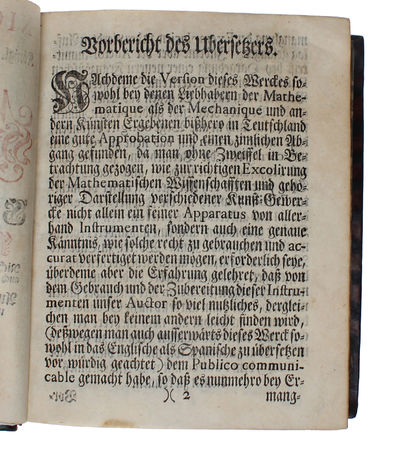 Vorbericht des Ubersetzers.
NAchdeme die Version dieses Werckes so-
wohl bey denen Liebhabern der Mathe-
matique als der Mechanique und an-
dern Künsten Ergebenen bißhero in Teutschland
eine gute Approbation und einen zimlichen Ab-
gang gefunden, da man ohne Zweiffel in Be-
trachtung gezogen, wie zur richtigen Excolirung
der Mathematischen Wissenschafften und gehö-
riger Darstellung verschiedener Kunst-Gewer-
cke nicht allein ein feiner Apparatus von aller-
hand Instrumenten, sondern auch eine genaue
Känntnis, wie solche recht zu gebrauchen und ac-
curat verfertiget werden mögen, erforderlich seye,
überdeme aber die Erfahrung gelehret, daß von
dem Gebrauch und der Zubereitung dieser Instru-
menten unser Auctor so viel nutzliches, derglei-
chen man bey keinem andern leicht finden wird,
(deßwegen man auch ausserwärts dieses Werck so-
wohl in das Englische als Spanische zu übersetzen
vor würdig geachtet) dem Publico communi-
cable gemacht habe, so daß es nunmehro bey Er-
)( 2 mang-